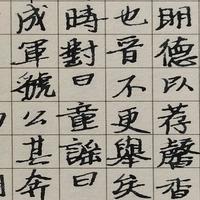 明德以荐馨香
也晋不更舉矣
時對曰童謠曰
成軍虢公其奔